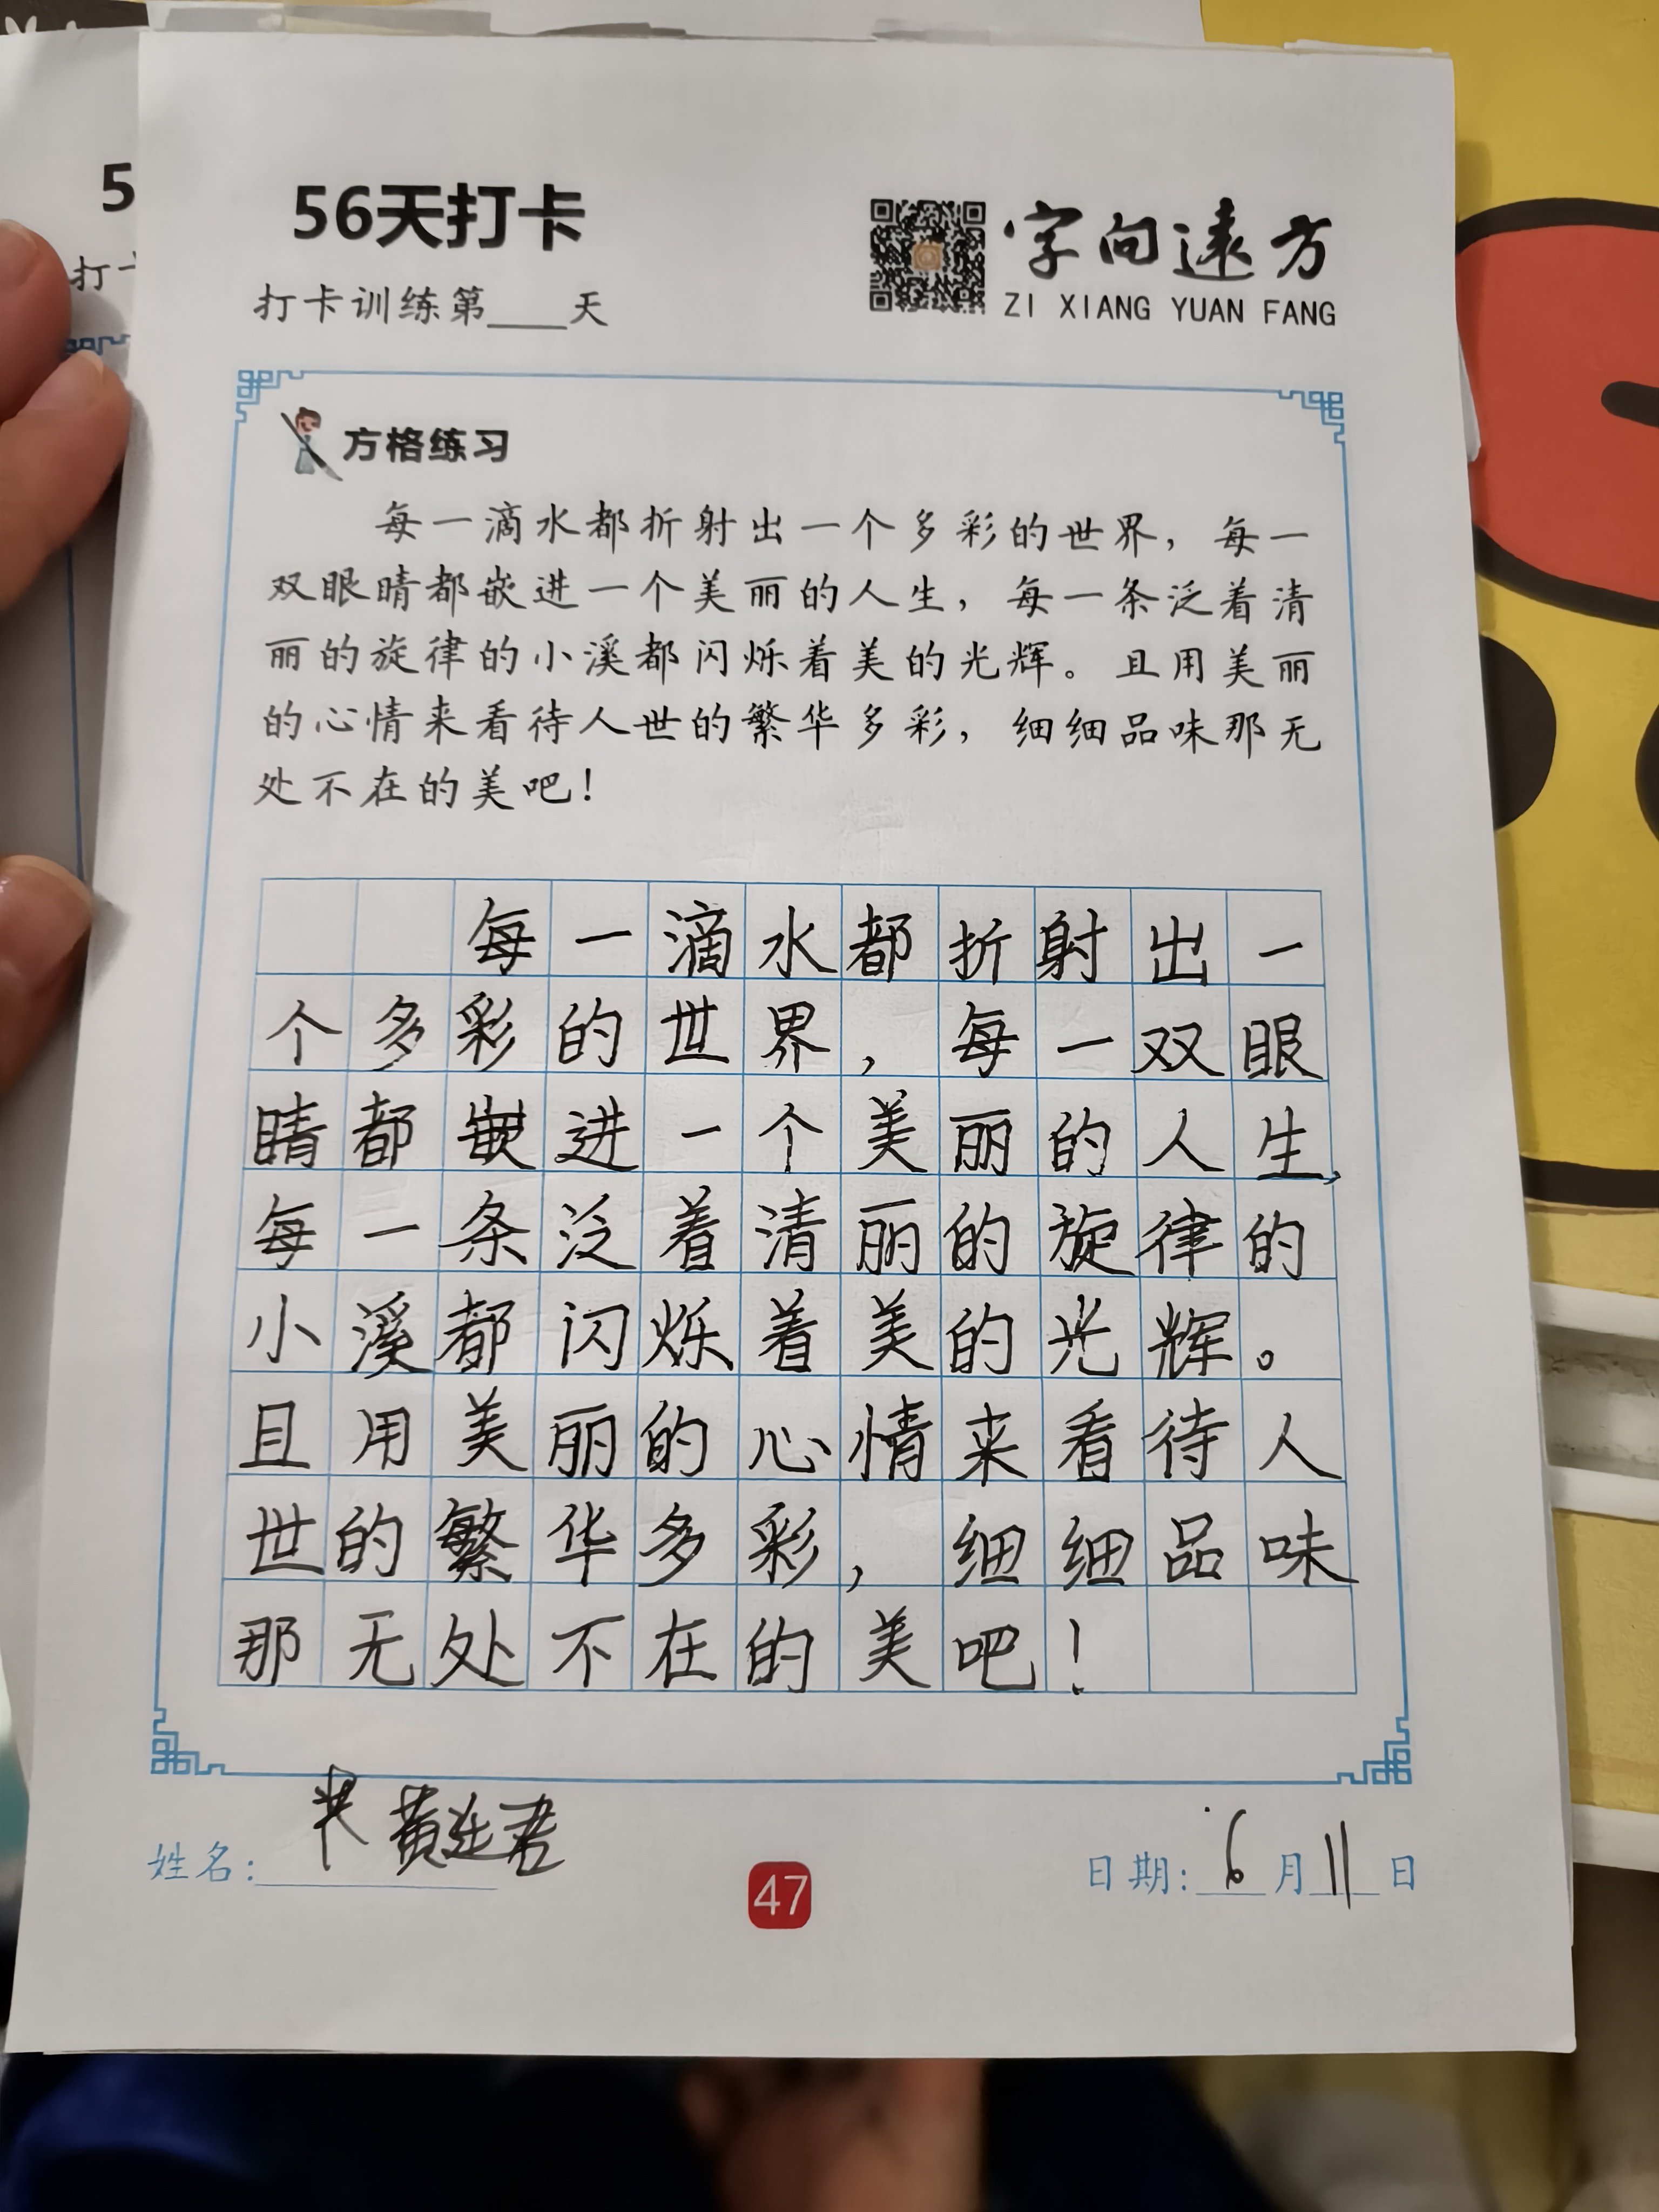 5
打卡
56天打卡
打卡训练第____天
字向远方
ZI XIANG YUAN FANG
方格练习
每一滴水都折射出一个多彩的世界，每一
双眼睛都嵌进一个美丽的人生，每一条泛着清
丽的旋律的小溪都闪烁着美的光辉。且用美丽
的心情来看待人世的繁华多彩，细细品味那无
处不在的美吧！
每一滴水都折射出一
个多彩的世界，每一双眼
睛都嵌进一个美丽的人生，
每一条泛着清丽的旋律的
小溪都闪烁着美的光辉。
且用美丽的心情来看待人
世的繁华多彩，细细品味
那无处不在的美吧！
姓名：黄
47
日期：6月11日